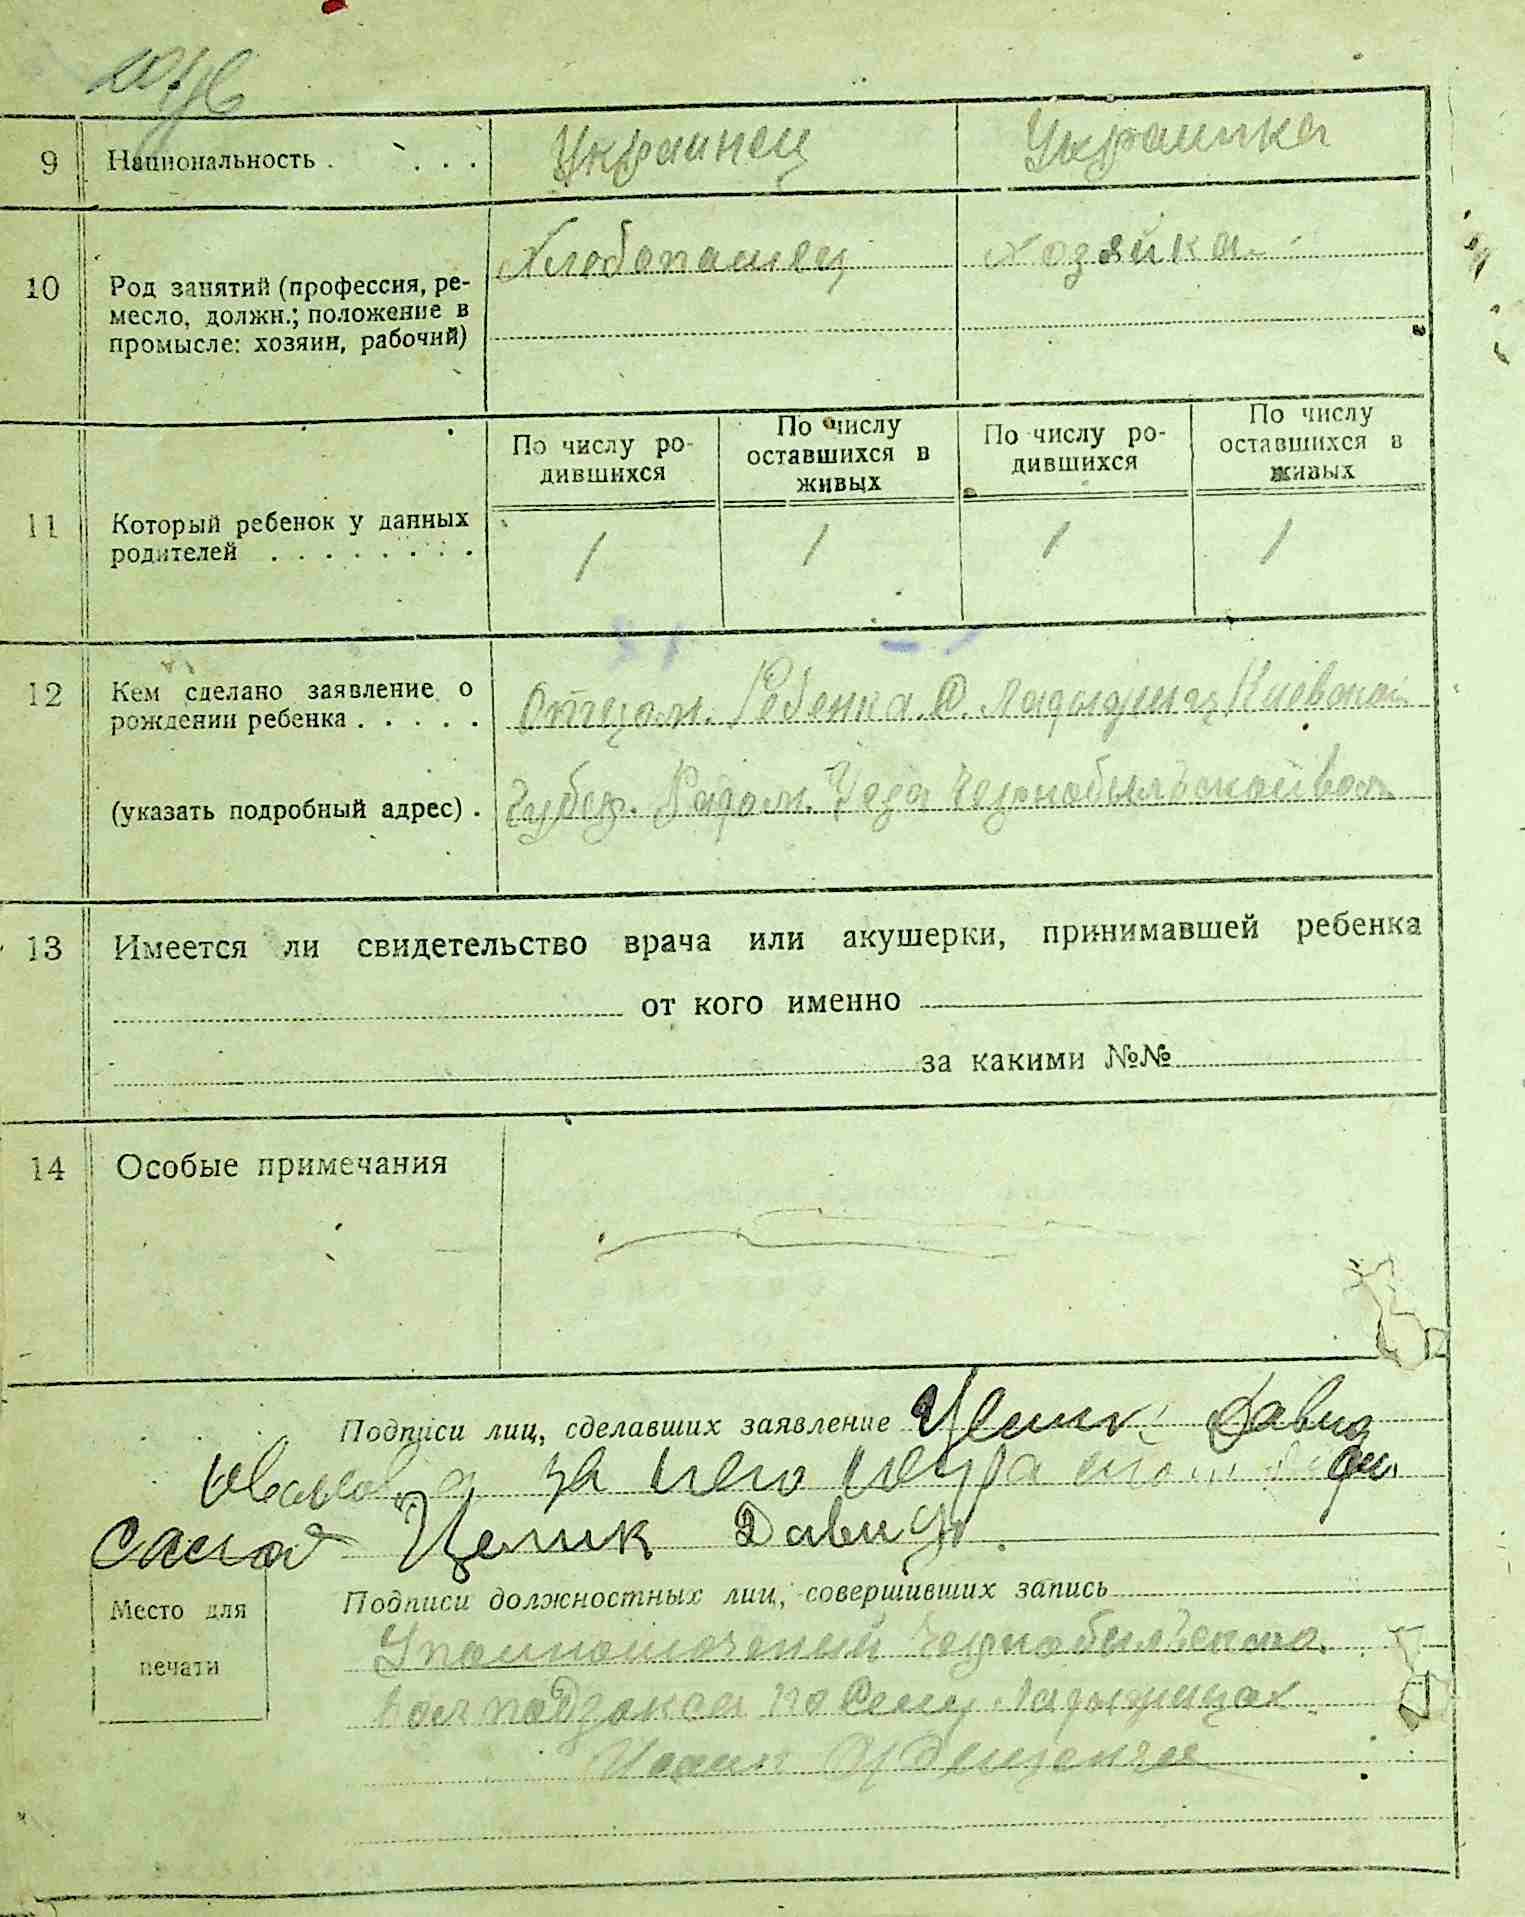 9 Национальность . . . . Украинец Украинка
10 Род занятий (профессия, ре-
месло, должн.; положение в
промысле: хозяин, рабочий)
Хлебопашец Хозяйка
11 Который ребенок у данных
родителей . . . . . . . .
По числу ро-
дившихся
По числу
оставшихся в
живых
По числу ро-
дившихся
По числу
оставшихся в
живых
1 1 1 1
12 Кем сделано заявление о
рождении ребенка . . . . .
Отцом Ребенка Киевской
(указать подробный адрес) .
Губер. Радом. Уезд Чернобыльской вол
13 Имеется ли свидетельство врача или акушерки, принимавшей ребенка
от кого именно
за какими №№
14 Особые примечания
Подписи лиц, сделавших заявление Целик Давид
а за него
Целик Давид
Место для
печати
Подписи должностных лиц, совершивших запись
Чернобыльского
волподзакса по Селу Ладыжичах